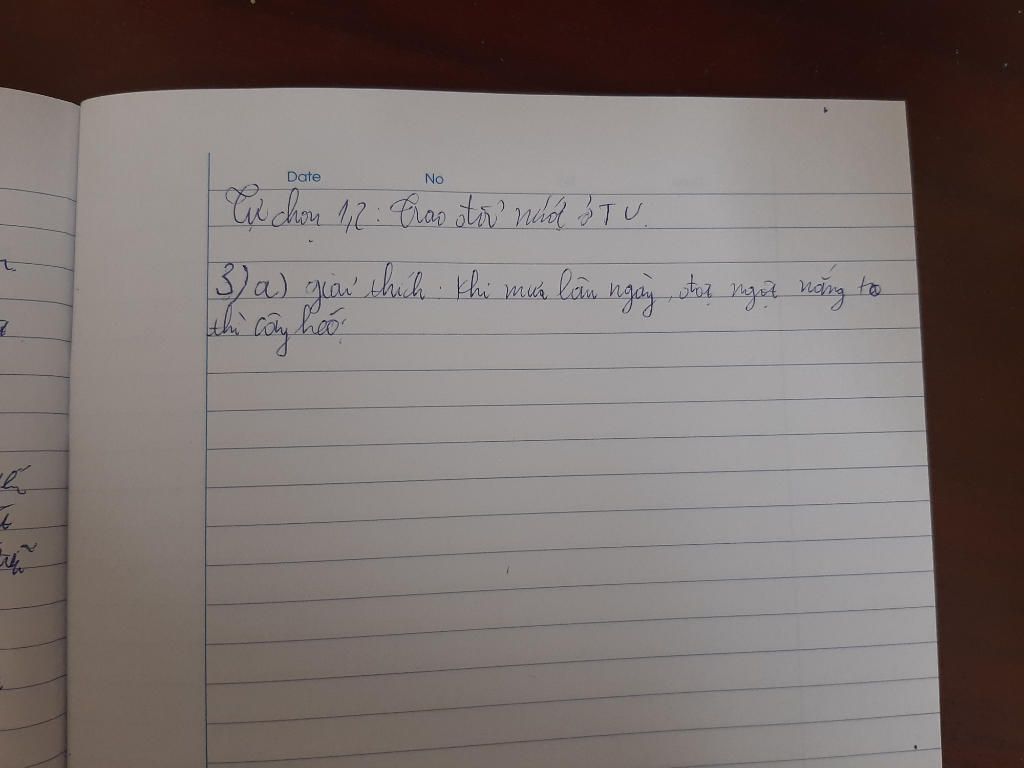 Date No
Tự chọn 1,2: Trao đổi nước ở TV.
3) a) giải thích: Khi mưa lâu ngày, đột ngột nắng to
thì cây héo: